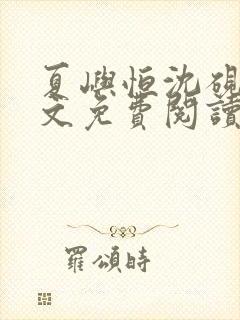 夏嶼恒沈硯
文免費閱讀
羅頌時